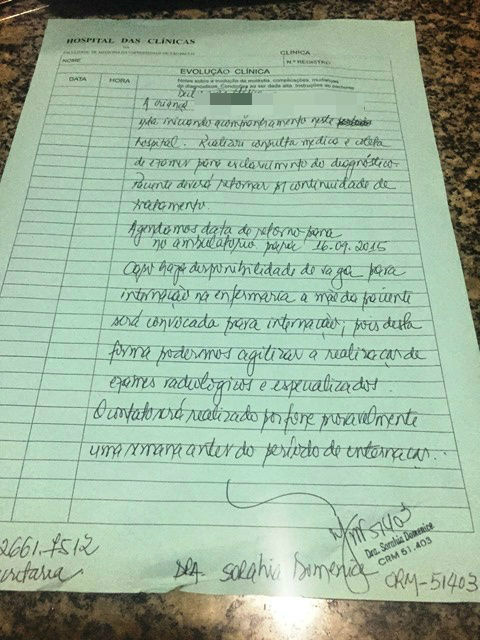 HOSPITAL DAS CLÍNICAS
FACULDADE DE MEDICINA DA UNIVERSIDADE DE SÃO PAULO
CLÍNICA
NOME
N.º REGISTRO
EVOLUÇÃO CLÍNICA
DATA HORA
Notas sobre a evolução da moléstia, complicações, mudanças
de diagnósticos, Condições ao ser dada alta, Instruções ao paciente
A criança
está iniciando acompanhamento neste
hospital. Realizou consulta médica e coleta
de exames para esclarecimento do diagnóstico.
Paciente deverá retornar p/ continuidade de
tratamento.
Agendamos data de retorno para
no ambulatório para 16.09.2015
Caso haja disponibilidade de vaga para
internação na enfermaria a mãe do paciente
será convocada para internação, pois desta
forma podermos agilizar a realização de
exames radiológicos e especializados.
O contato será realizado por fone provavelmente
uma semana antes do período de internação.
51403
Dra. Sorahia Domenice
CRM 51.403
2661.7512
DRA. SORAHIA DOMENICE CRM-51403